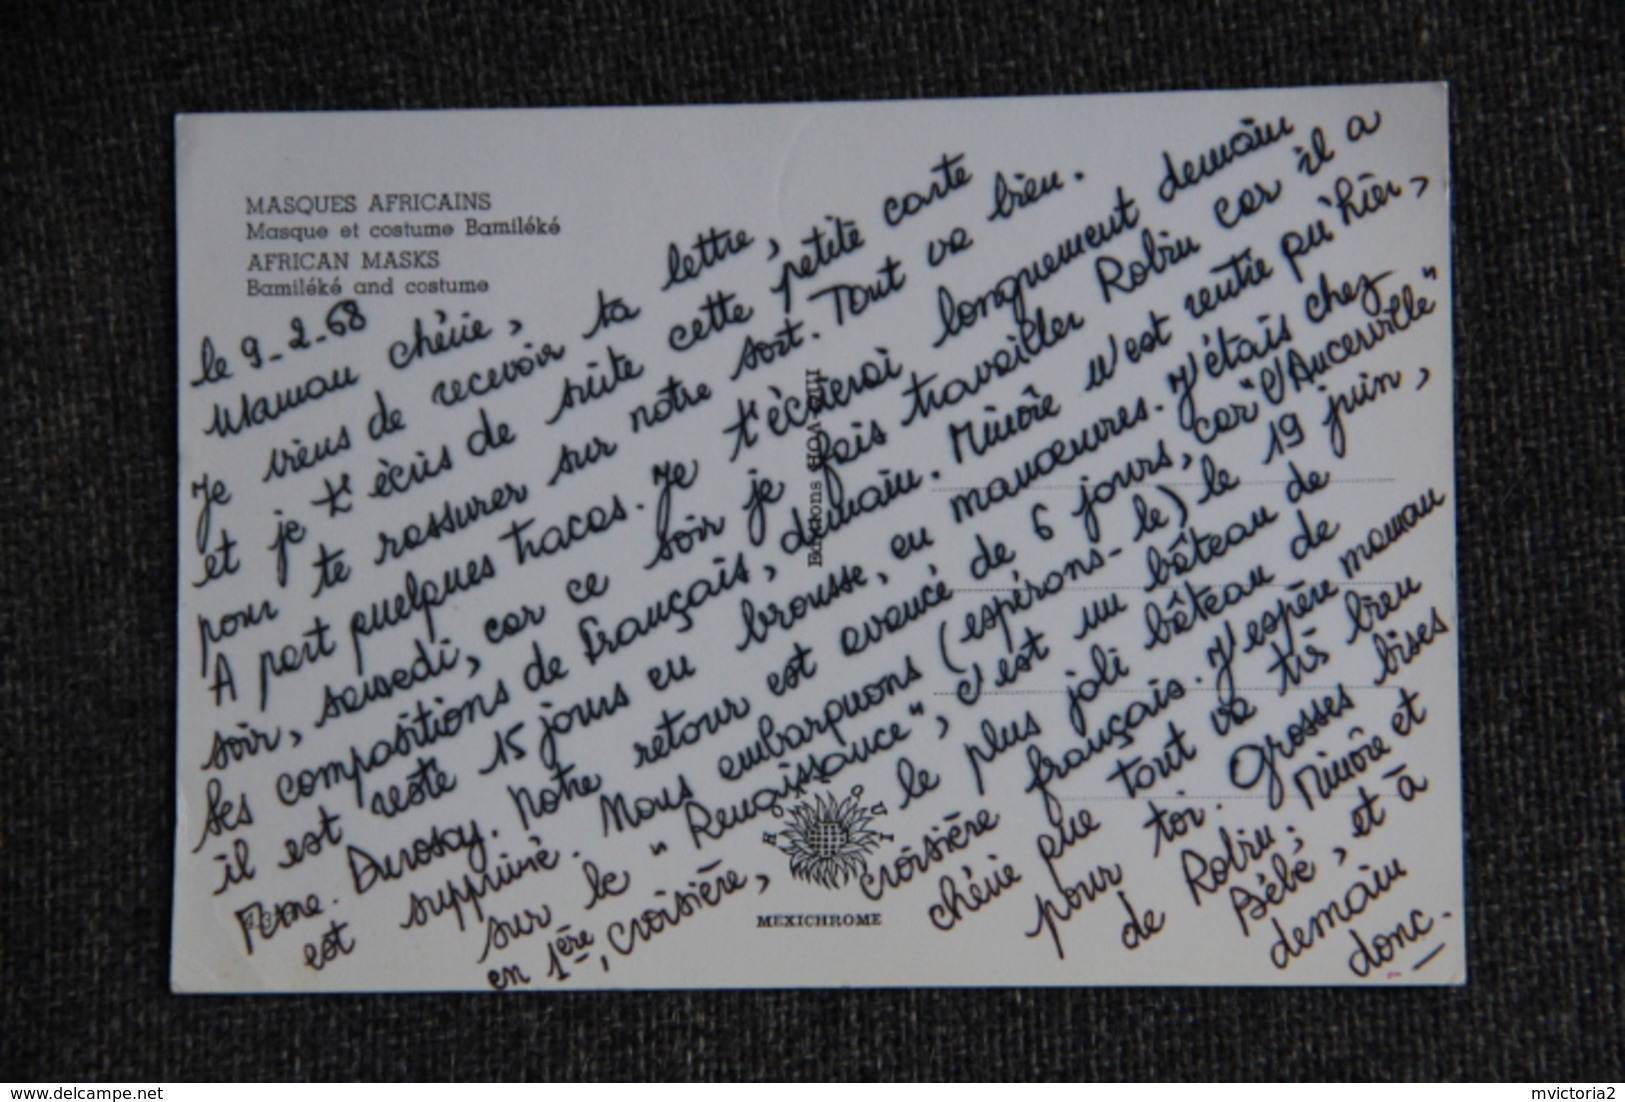 MASQUES AFRICAINS
Masque et costume Bamiléké
AFRICAN MASKS
Bamiléké and costume
le 9-2-68
Maman chérie,
Je viens de recevoir ta lettre,
et je t'écris de suite cette petite carte
pour te rassurer sur notre sort. Tout va bien.
A part quelques tracas. Je t'écrierai longuement demain
soir, samedi, car ce soir je fais travailler Robin car il a
ses compositions de Français, demain. Minôre n'est rentré qu'hier,
il est resté 15 jours en brousse, en manoeuvres. J'étais chez
Mme. Durosay. Notre retour est avancé de 6 jours, car "l'Ancerville"
est supprimé. Nous embarquons (espérons-le) le 19 juin,
sur le "Renaissance", c'est un bâteau de
en 1ère, croisière, le plus joli bâteau de
croisière français. J'espère maman
chérie que tout va très bien
pour toi. Grosses bises
de Robin, Minôre et
Bébé, et à
demain
donc.
Editions HOA-QUI
HOA QUI
MEXICHROME
delcampe.net
mvictoria2